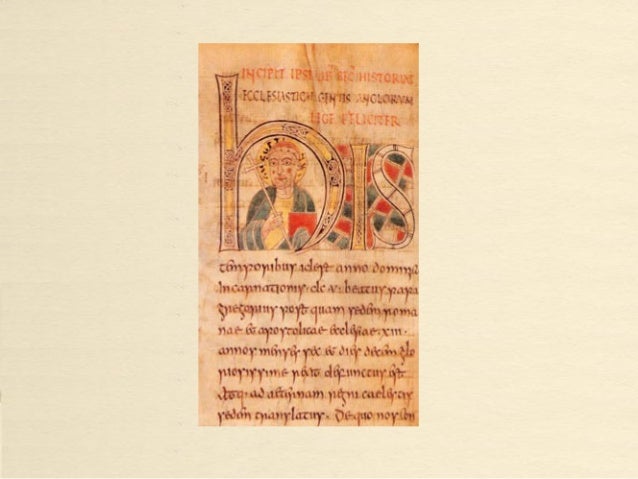 INCIPIT HISTORIAE
ECCLESIASTICAE GENTIS ANGLORVM
FELICITER
his
temporibus idest anno
Incarnationis · dc v · beatus papa
gregorius post quam sedem roma
nae et apostolicae ecclesiae · xiii ·
annos et dies decem glo
riosissime rexit defunctus est
atq· ad regni caelestis
sedem translatus · De quo nos